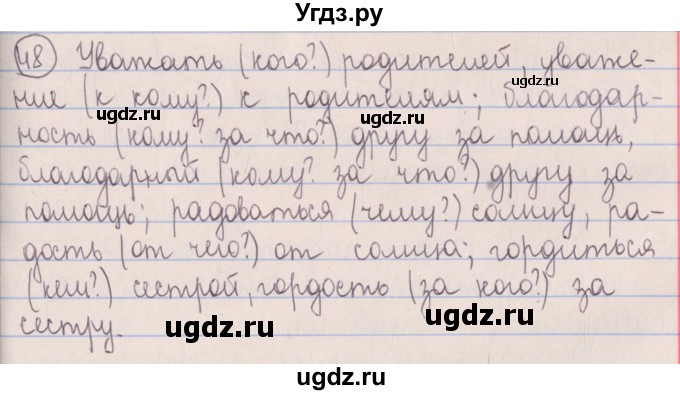 Угдз.ру
48 Уважать (кого?) родителей, уваже-
ние (к кому?) к родителям; благодар-
ugdz.ru ugdz.ru
ность (кому? за что?) другу за помощь,
благодарный (кому? за что?) другу за
помощь; радоваться (чему?) солнцу, ра-
дость (от чего?) от солнца; гордиться
(кем?) сестрой, гордость (за кого?) за
сестру.
ugdz.ru ugdz.ru
ugdz.ru